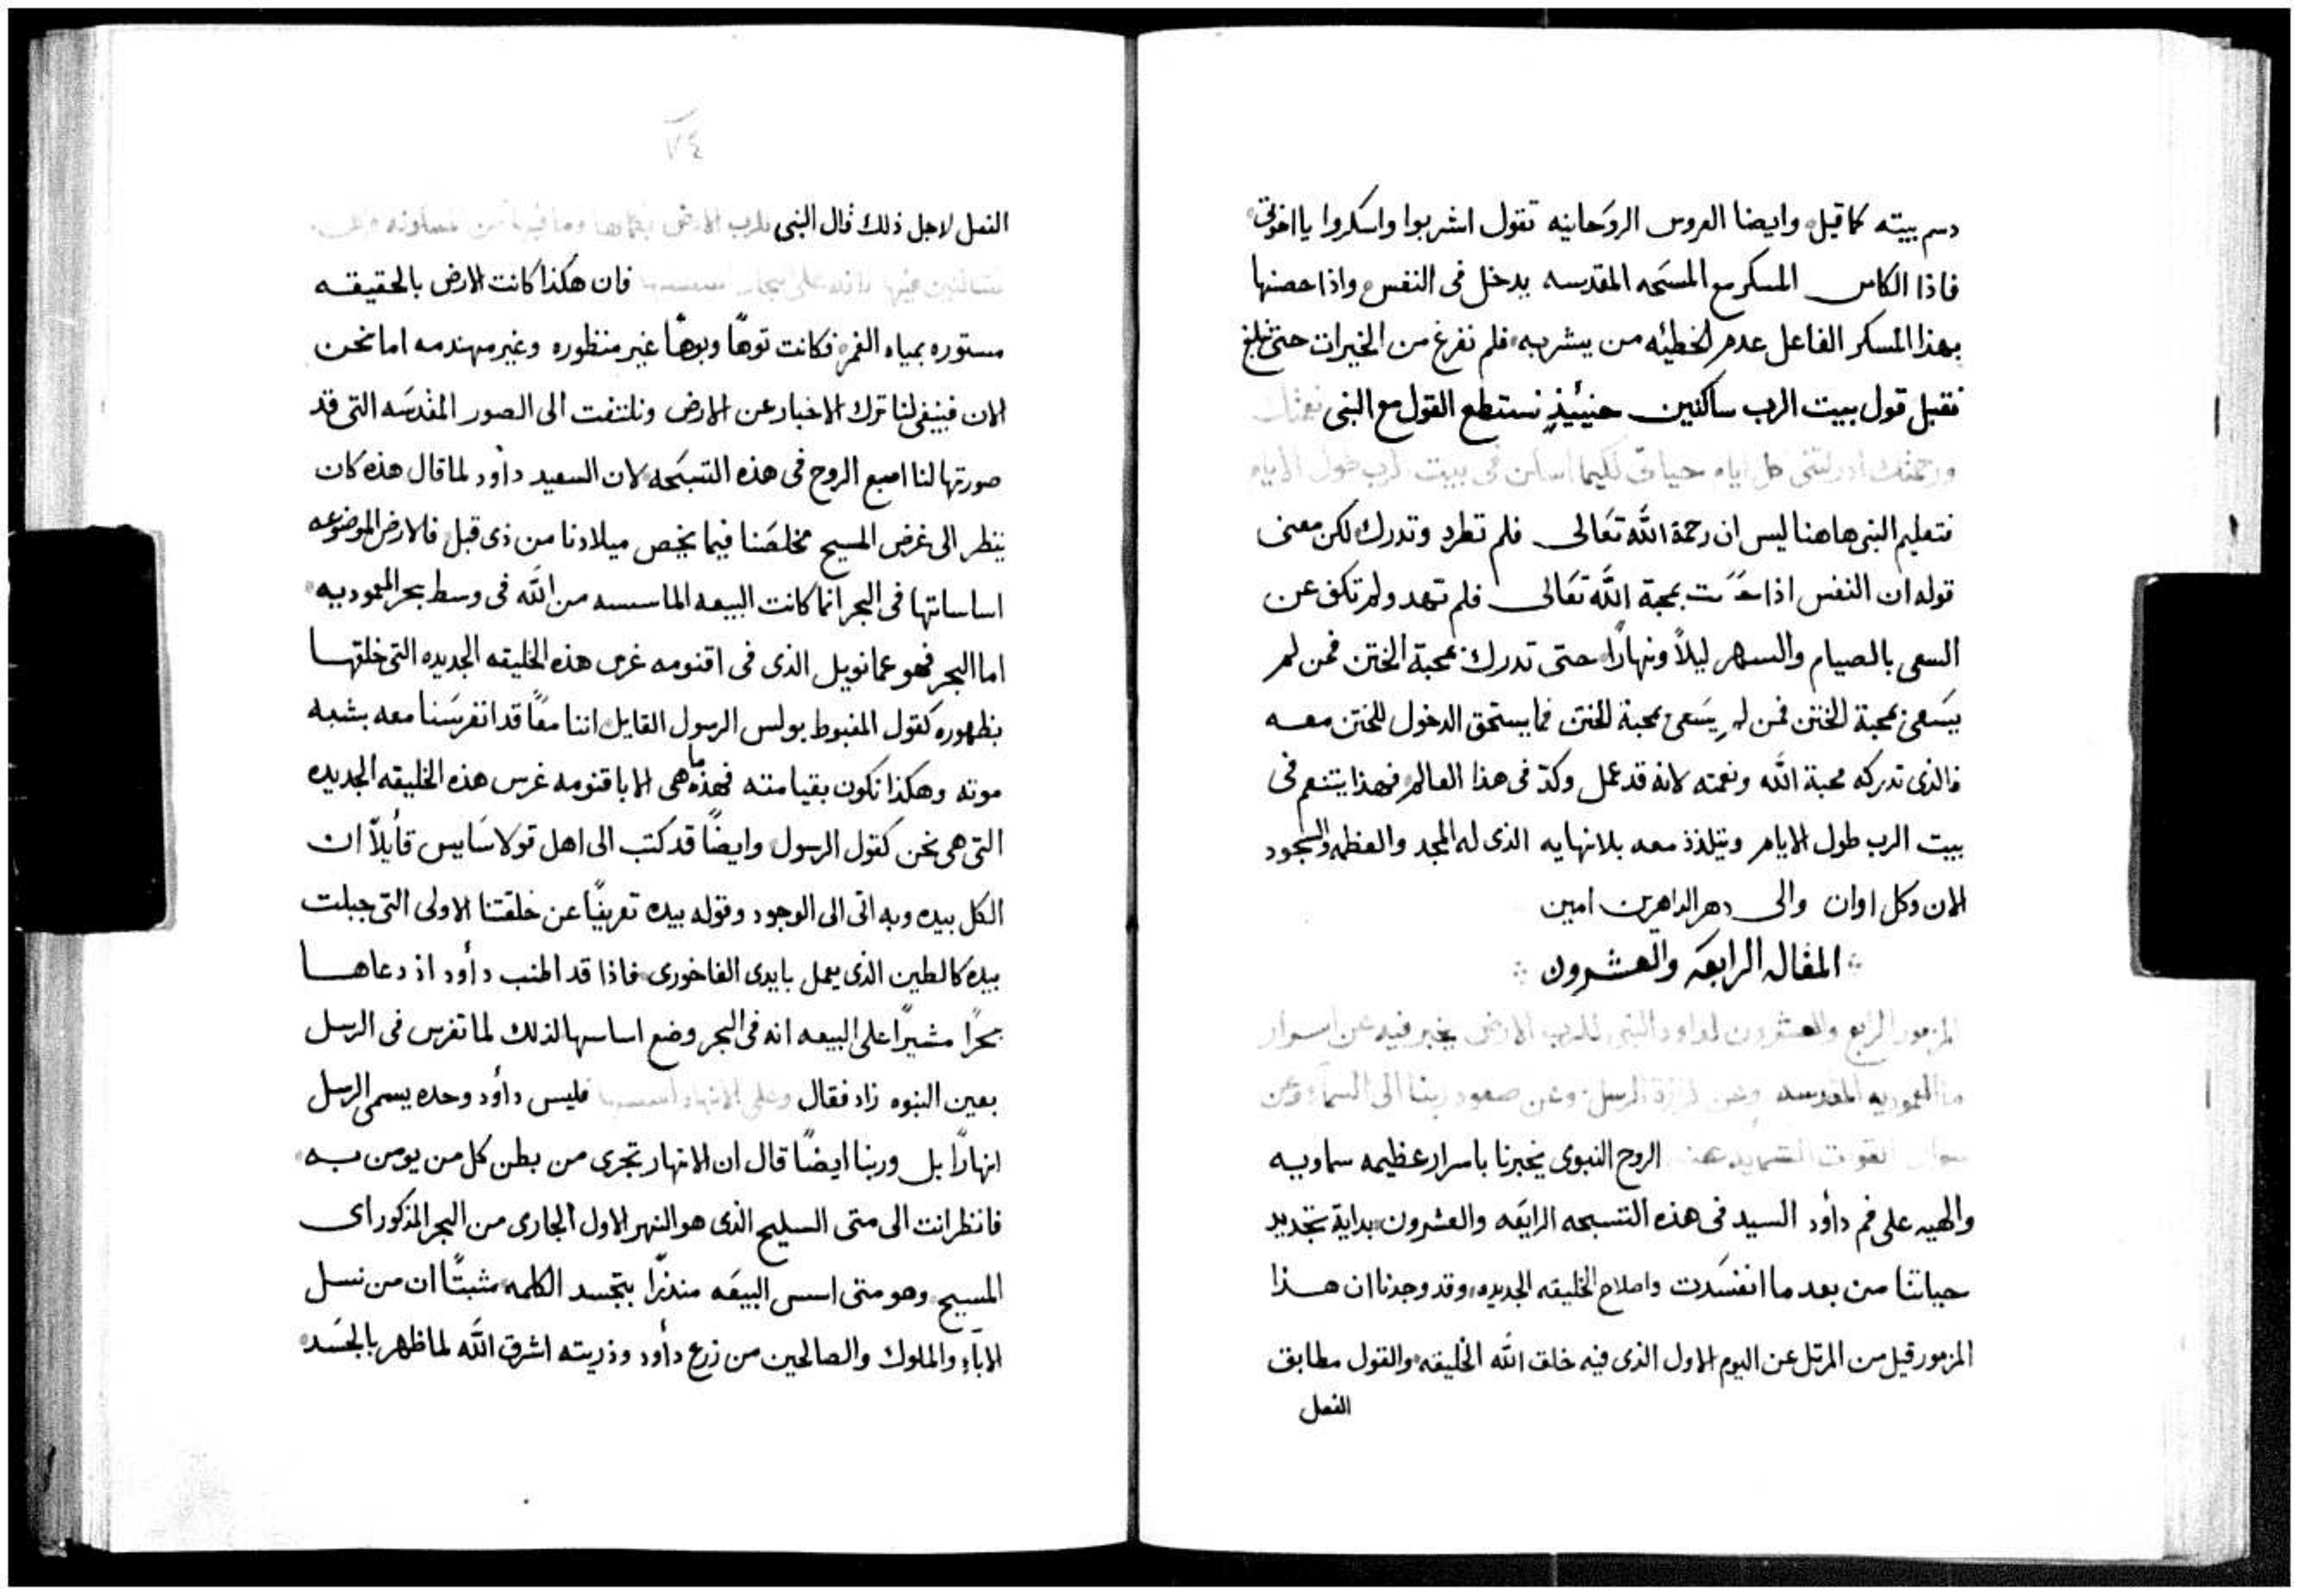 دسم بيته كما قيل وايضا العروس الروحانيه تقول اشربوا واسكروا يا اخوتى
فاذا الكاس المسكر مع المسحه المقدسه يدخل فى النفس واذا حصنها
بهذا المسكر الفاعل عدم الخطيئه من يشربه فلم نفرغ من الخيرات حتى نبلغ
نقبل قول بيت الرب ساكنين حنيئيذٍ نستطع القول مع النبى نعمتك
ورحمتك ادركتنى كل ايام حياتى لكيما اسكن فى بيت الرب طول الايام
فتعليم النبى هاهنا ليس ان رحمة الله تعالى فلم تطرد وتدرك لكن معنى
قوله ان النفس اذا بمحبة الله تعالى فلم تهد ولم تكف عن
السعى بالصيام والسهر ليلاً ونهارًا حتى تدرك محبة الختن فمن لم
يسعى بمحبة الختن فمن لم يسعى بمحبة الختن فما يستحق الدخول للختن معه
فالذى تدركه محبة الله ونعمته لانه قد عمل وكدّ فى هذا العالم فهذا يتنعم فى
بيت الرب طول الايام ويتلذذ معه بلا نهايه الذى له المجد والعظمه والسجود
الان وكل اوان والى دهر الداهرين امين
المقاله الرابعه والعشرون
المزمور الرابع والعشرون لداود النبى للرب الارض يخبر فيه عن اسرار
المعموديه المقدسه وعن كرازة الرسل وعن صعود ربنا الى السماء وعن
القوات الروح النبوى يخبرنا باسرار عظيمه سماويه
والهيه على فم دأود السيد فى هذه التسبحه الرابعه والعشرون بداية تجديد
حياتنا من بعد ما انفسدت واصلاح الخليقه الجديده وقد وجدنا ان هذا
المزمور قيل من المرتل عن اليوم الاول الذى فيه خلق الله الخليقه والقول مطابق
الفعل
٧٤
الفعل لاجل ذلك قال النبى للرب الارض بكمالها وما فيها
فان هكذا كانت الارض بالحقيقه
مستوره بمياه الغمر فكانت توهًا وبوهًا غير منظوره وغير مهندمه اما نحن
الان فينبغى لنا ترك الاخبار عن الارض ونلتفت الى الصور المقدسه التى قد
صورتها لنا اصبع الروح فى هذه التسبحه لان السعيد دأود لما قال هذه كان
ينظر الى غرض المسيح مخلصنا فيما يخص ميلادنا من ذى قبل فالارض الموضوعه
اساساتها فى البحر انما كانت البيعه الماسسه من الله فى وسط بحر المعموديه
اما البحر فهو عمانويل الذى فى اقنومه غرس هذه الخليقه الجديده التى خلقها
بظهوره كقول المغبوط بولس الرسول القايل اننا معًا قد انغرسنا معه بشبه
موته وهكذا نكون بقيامته فهذه ما هى الا باقنومه غرس هذه الخليقه الجديده
التى هى نحن كقول الرسول وايضًا قد كتب الى اهل قولاسايس قأيلاً ان
الكل بيده وبه اتى الى الوجود وقوله بيده تعريفًا عن خلقتنا الاولى التى جبلت
بيده كالطين الذى يعمل بايدى الفاخورى فاذا قد اطنب دأود اذ دعاها
بحرًا مشيرًا على البيعه انه فى البحر وضع اساسها لذلك لما تفرس فى الرسل
بعين النبوه زاد فقال وعلى الانهار فليس دأود وحده يسمى الرسل
انهارًا بل وربنا ايضًا قال ان الانهار تجرى من بطن كل من يومن به
فانظر انت الى متى السليح الذى هو النهر الاول الجارى من البحر المذكور اى
المسيح وهو متى اسس البيعه منذرًا بتجسد الكلمه مثبتًا ان من نسل
الاباء والملوك والصالحين من زرع دأود وذريته اشرق الله لما ظهر بالجسد